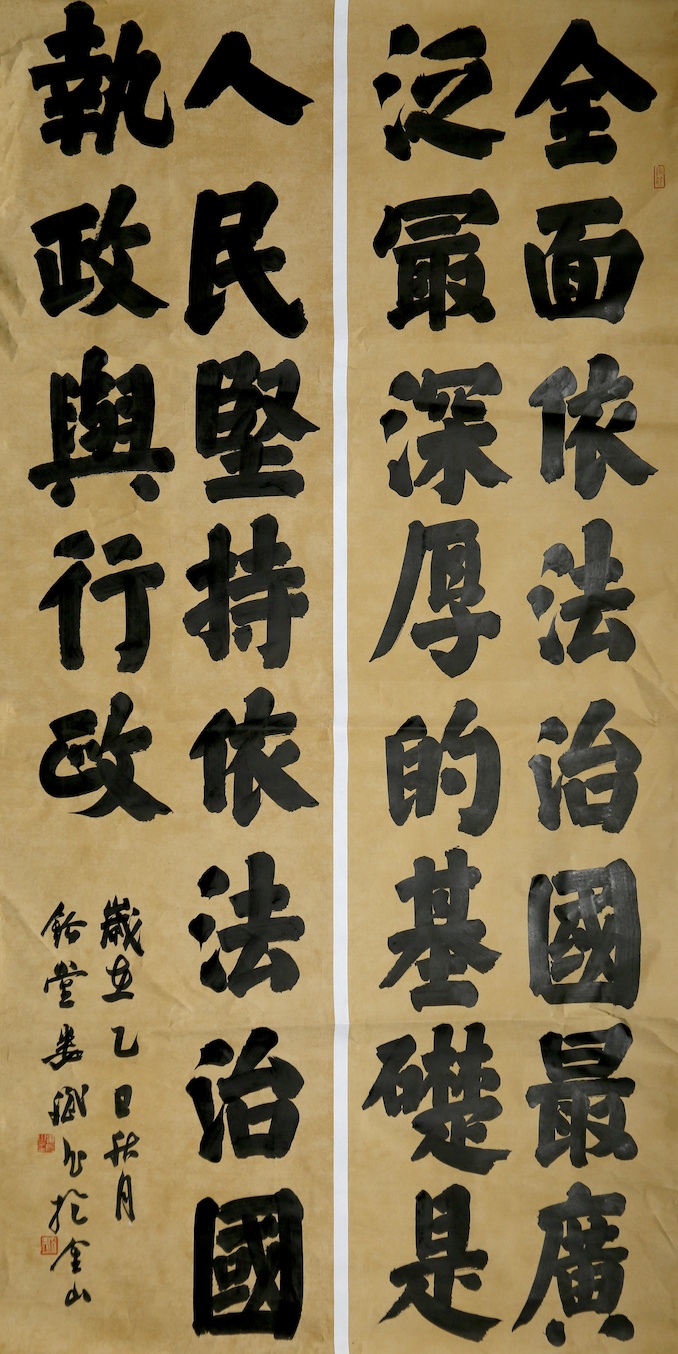 全面依法治國最廣
泛最深厚的基礎是
人民堅持依法治國
執政與行政
歲在乙巳秋月
堂婁斌书於金山